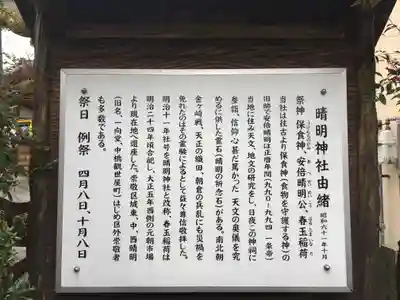 晴明神社由緒 昭和六十一年十月
祭神 保食神、安倍晴明公、春玉稲荷
当社は往古より保食神（食物を守護する神）の
旧跡で安倍晴明は正暦年間（九九〇～九九四 一条帝）
当地に住み天文、地文の研究をし、日夜この神祠に
参詣、信仰心甚だ篤かった 天文の奥儀を究
めるに供した霊石（晴明の祈念石）がある。南北朝
金ヶ崎戦、天正の織田、朝倉の兵乱にも災禍を
免れたのはその霊験によるとして益々尊信敬拝した。
明治十一年社号を晴明神社と改称、春玉稲荷は
明治二十四年頃合祀し、大正五年西側の元朝市場
より現在地へ遷座した。崇敬区域東、中、西晴明
（旧名、一向堂、中橋観世屋町）はじめ区外崇敬者
も多数である。
祭日 例祭 四月八日、十月八日